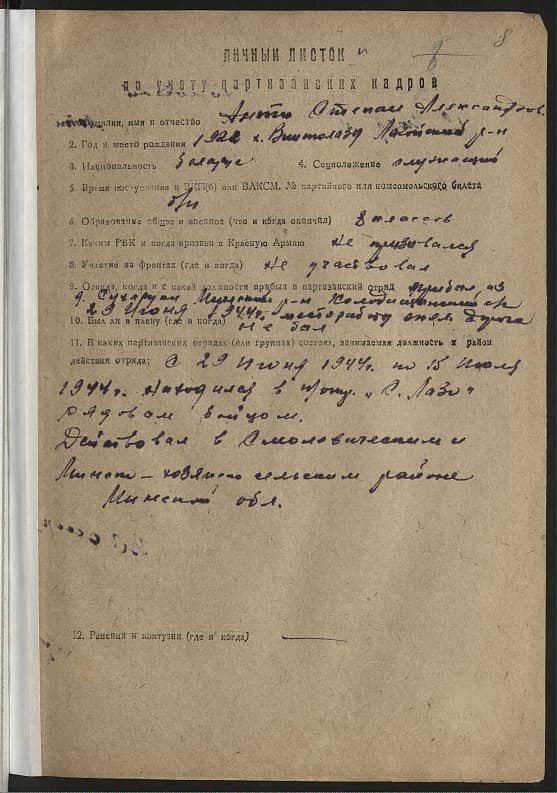 8
8
ЛИЧНЫЙ ЛИСТОК
по учету партизанских кадров
1. Фамилия, имя и отчество Степан Александров.
2. Год и место рождения 1922 р-н
3. Национальность Беларус 4. Соцположение служащий
5. Время поступления в ВКП(б) или ВЛКСМ. № партийного или комсомольского билета
б/п
6. Образование общее и военное (что и когда окончил) 8 классов
7. Каким РВК и когда призван в Красную Армию Не призывался
8. Участие на фронтах (где и когда) Не участвовал
9. Откуда, когда и с какой должности прибыл в партизанский отряд прибыл из
д. Минский р-н
29 Июня 1944г. дорога
10. Был ли в плену (где и когда) не был
11. В каких партизанских отрядах (или группах) состоял, занимаемая должность и район
действия отряда: С 29 Июня 1944г. по 15 Июля
1944г. находился в "С. Лазо"
рядовым бойцом.
Действовал в Смолевическим и
Минско- сельским районе
Минской обл.
12. Ранения и контузии (где и когда) —